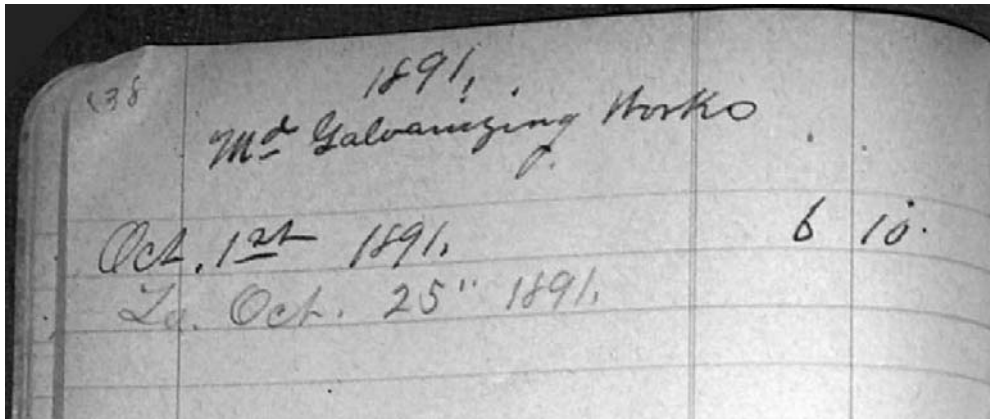 138
1891.
Md Galvanizing Works
Oct. 1st 1891. 6 10.
To. Oct. 25" 1891.